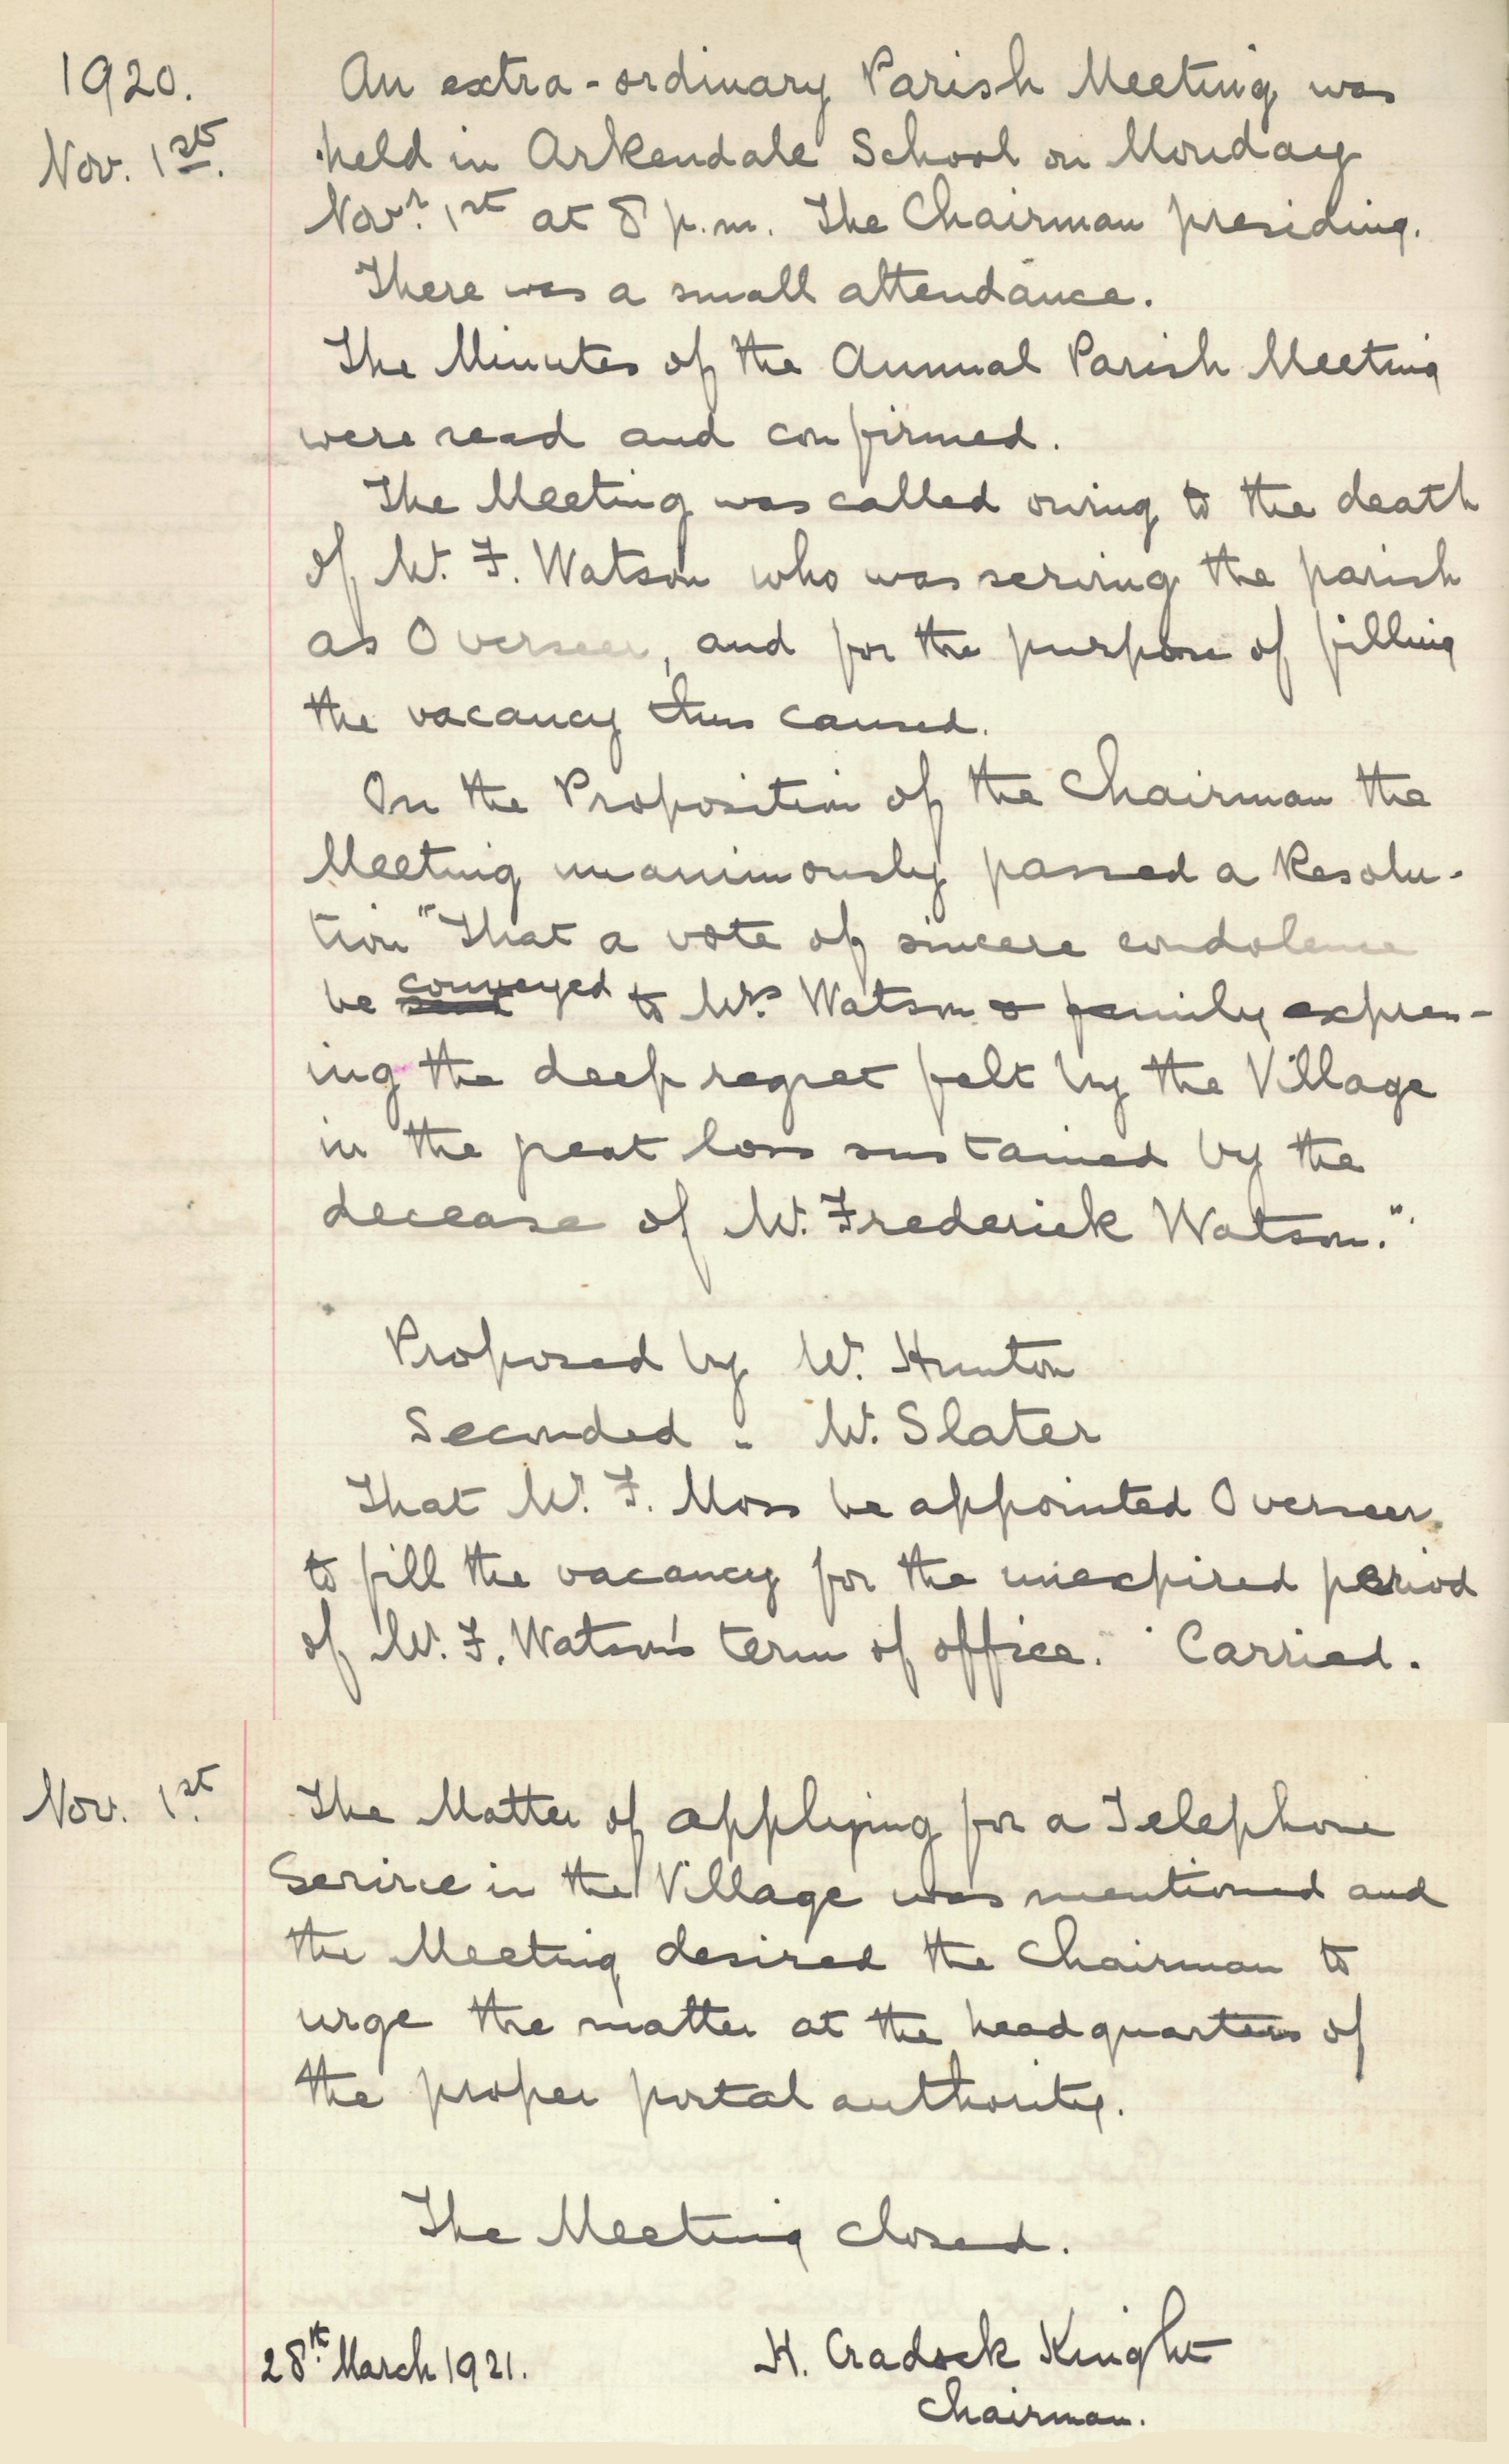 1920.
Nov. 1st.
An extra-ordinary Parish Meeting was
held in Arkendale School on Monday
Novr. 1st at 8 p.m. The Chairman presiding.
There was a small attendance.
The Minutes of the Annual Parish Meeting
were read and confirmed.
The Meeting was called owing to the death
of Mr. F. Watson who was serving the parish
as Overseer, and for the purpose of filling
the vacancy thus caused.
On the Proposition of the Chairman the
Meeting unanimously passed a Resolu-
tion "That a vote of sincere condolence
be sent conveyed to Mrs. Watson & family express-
ing the deep regret felt by the Village
in the great loss sustained by the
decease of Mr. Frederick Watson."
Proposed by Mr. Hunton
Seconded " Mr. Slater
That Mr. F. Moss be appointed Overseer
to fill the vacancy for the unexpired period
of Mr. F. Watson's term of office. Carried.
Nov. 1st.
The Matter of applying for a Telephone
Service in the Village was mentioned and
the Meeting desired the Chairman to
urge the matter at the headquarters of
the proper postal authority.
The Meeting closed.
28th. March 1921.
H. Cradock Knight
Chairman.